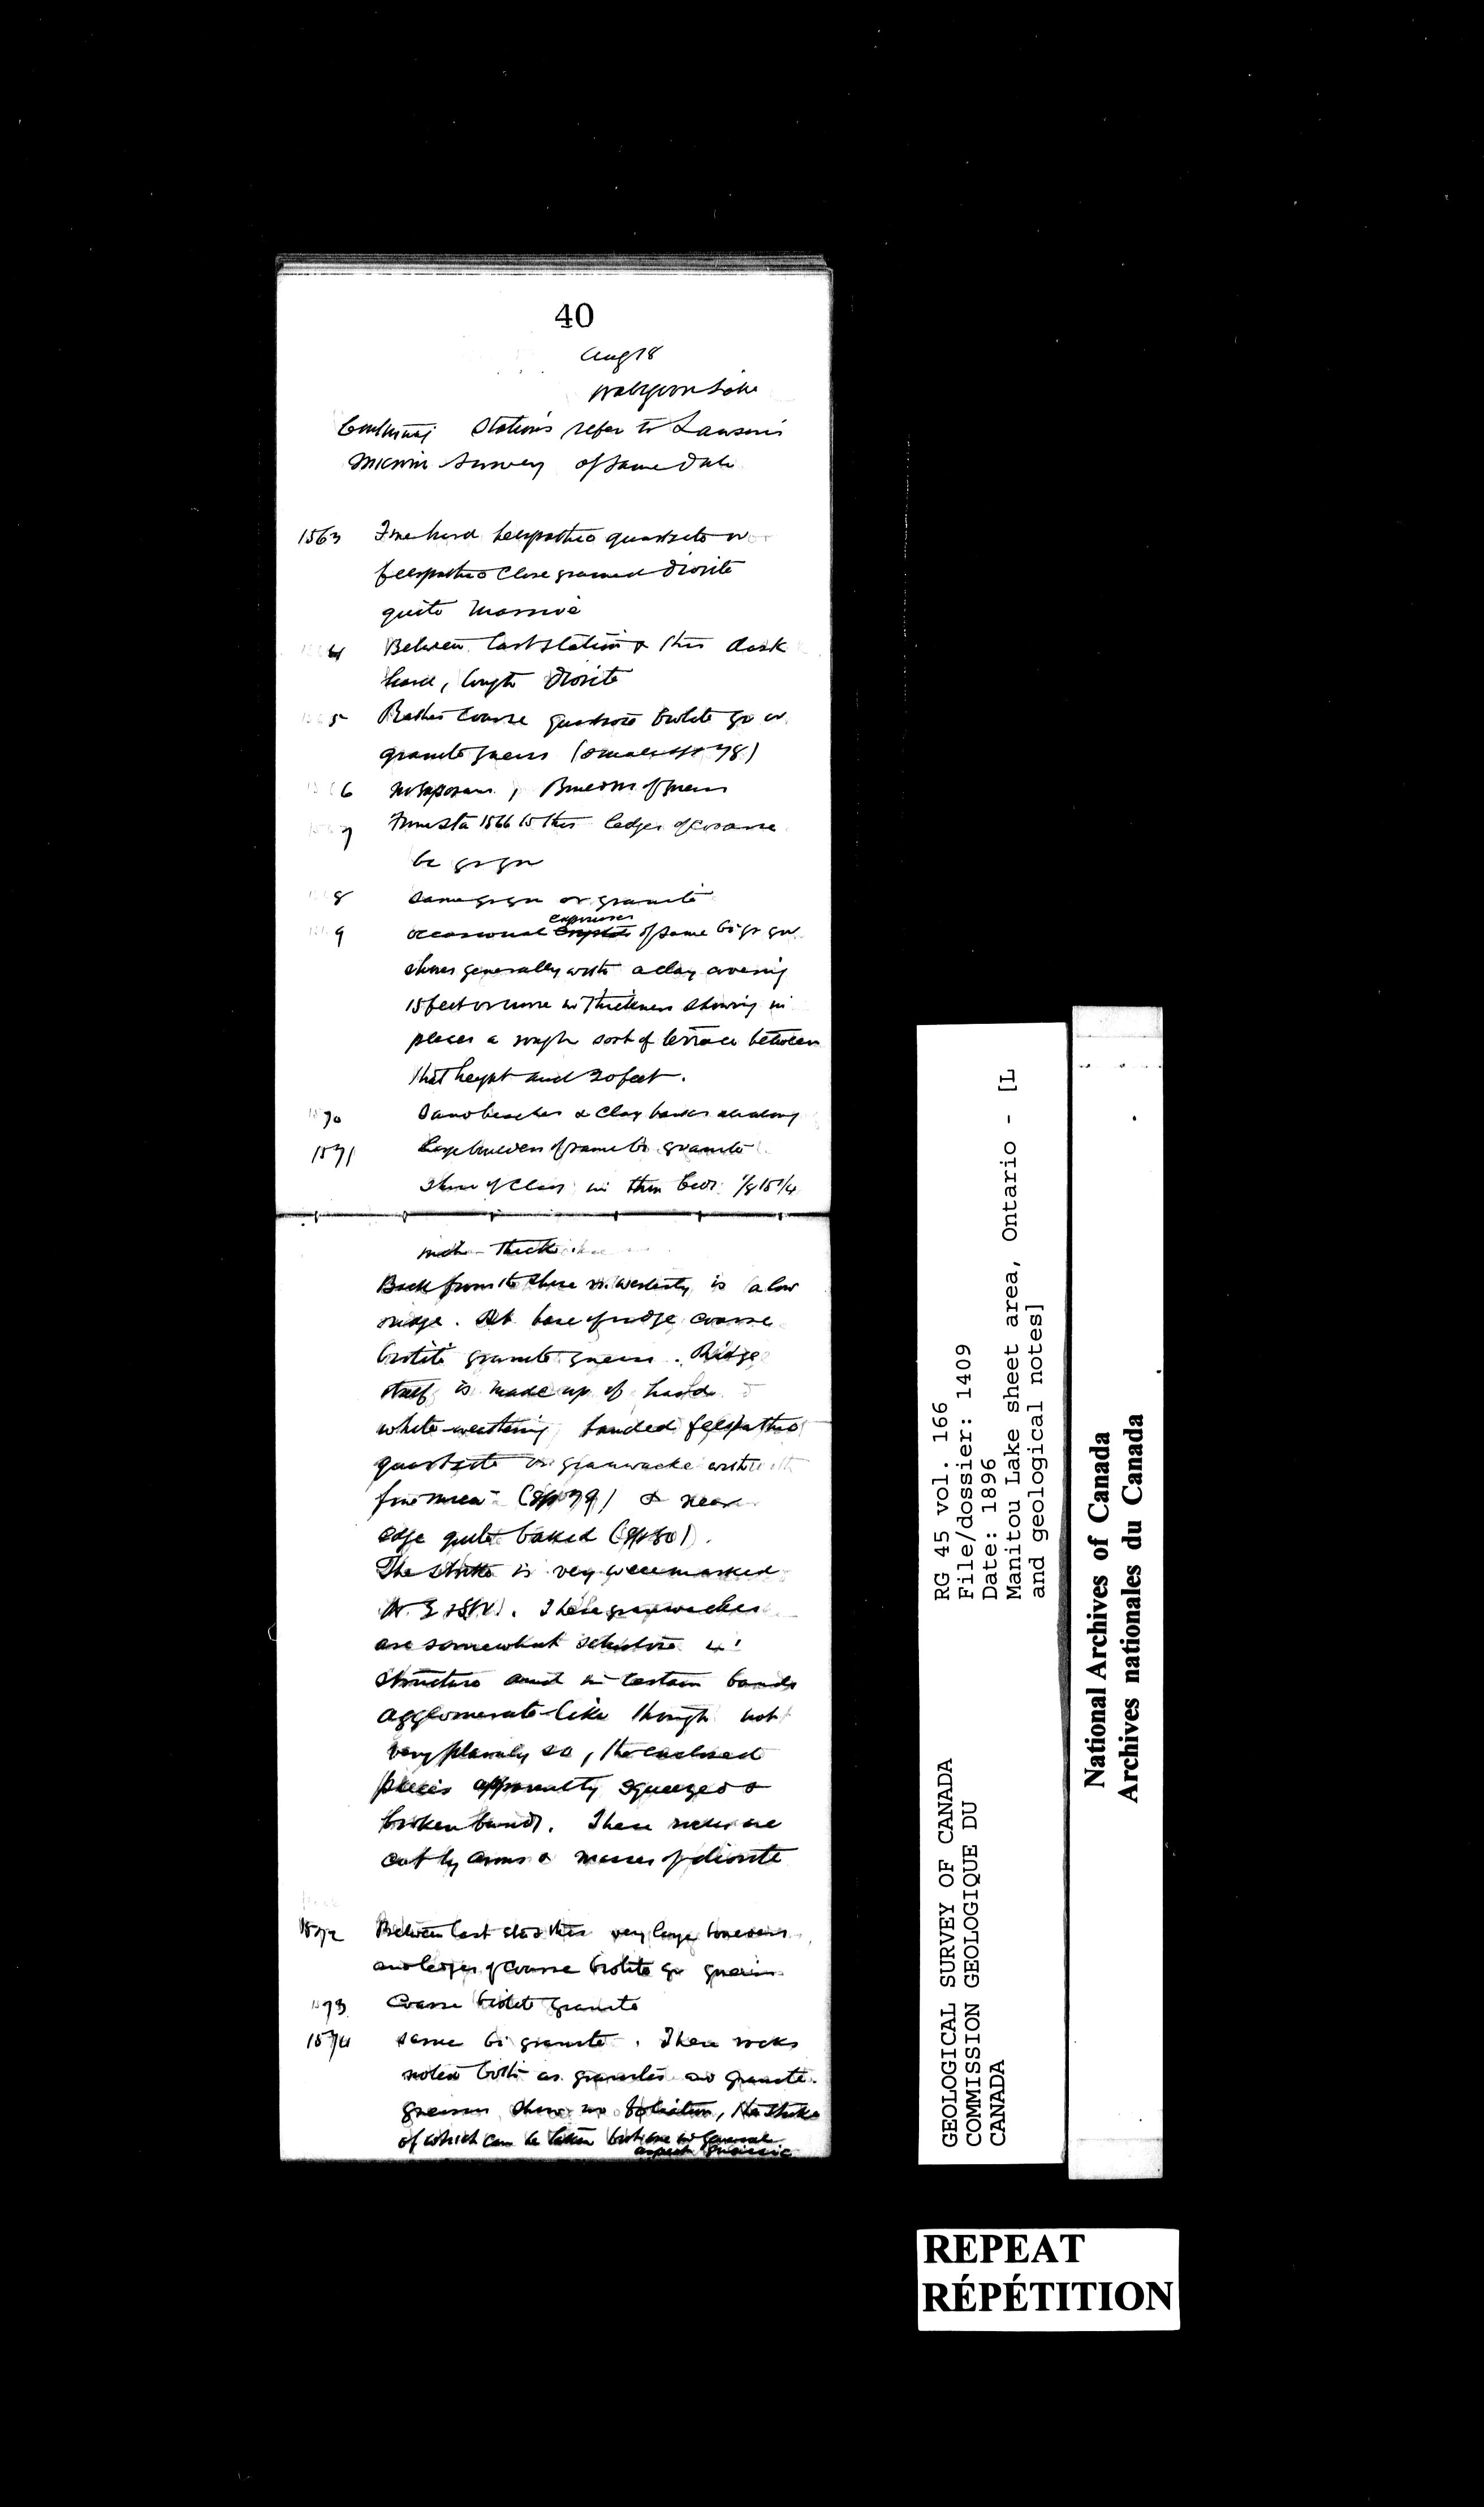 40
Aug 18
Wabigoon Lake
Continuing Stations refer to Lawson's
Micro Survey of same date
1563 Fine hard felspathic quartzite or
felspathic close grained diorite
quite massive
4 Between last station & this dark
hard, tough diorite
5 Rather coarse quartzose biotite gr or
granite gneiss (small sp 78)
6 No exposure, Boulders of gneiss
7 From sta 1566 to this ledges of coarse
bi gr gn
8 Same gr gn or granite
9 Occasional exposures of same bi gr gn
shores generally with a clay covering
15 feet or more in thickness showing in
places a rough sort of terrace between
that height and 20 feet.
1570 Sand beaches & clay banks all along
1571 Large boulders of same bi granite
Shore of clay in thin beds 1/8 to 1/4
inch thick
Back from the shore N. westerly is a low
ridge. At base of ridge coarse
biotite granite gneiss. Ridge
itself is made up of hard
white-weathering banded felspathic
quartzite or grauwacke with
fine mica (sp 79) & near
edge quite baked (sp 80).
The strike is very well marked
These grauwackes
are somewhat schistose in
structure and in certain bands
agglomerate-like though not
very plainly so, the enclosed
pieces apparently squeezed &
broken bands. These rocks are
cut by arms & masses of diorite
1572 Between last sta & this very large boulders
and ledges of coarse biotite gr gneiss
1573 Coarse biotite granite
1574 Same bi granite. These rocks
noted both as granites and granite
gneisses show no foliation, the strike
of which can be taken but are in general
aspect gneissic
RG 45 vol. 166
File/dossier: 1409
Date: 1896
Manitou Lake sheet area, Ontario - [L
and geological notes]
GEOLOGICAL SURVEY OF CANADA
COMMISSION GEOLOGIQUE DU
CANADA
National Archives of Canada
Archives nationales du Canada
REPEAT
RÉPÉTITION